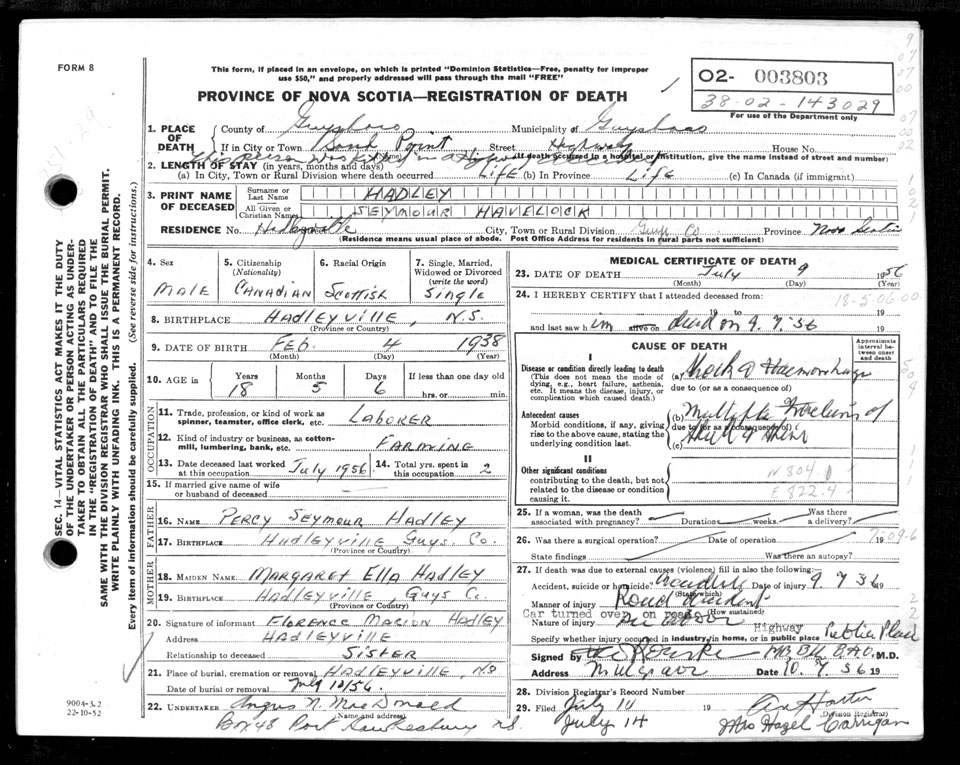 FORM 8
This form, if placed in an envelope, on which is printed "Dominion Statistics—Free, penalty for improper
use $50," and properly addressed will pass through the mail "FREE"
PROVINCE OF NOVA SCOTIA—REGISTRATION OF DEATH
02- 003803
38-02-143029
For use of the Department only
1. PLACE OF DEATH
County of Guysboro Municipality of Guysboro
If in City or Town Sand Point Street Highway House No.
This person was killed in a Highway
(Name) (If death occurred in a hospital or institution, give the name instead of street and number)
2. LENGTH OF STAY (in years, months and days)
(a) In City, Town or Rural Division where death occurred Life (b) In Province Life (c) In Canada (if immigrant)
3. PRINT NAME OF DECEASED
Surname or Last Name HADLEY
All Given or Christian Names SEYMOUR HAVELOCK
RESIDENCE No. Hadleyville City, Town or Rural Division Guys Co Province Nova Scotia
(Residence means usual place of abode. Post Office Address for residents in rural parts not sufficient)
4. Sex MALE
5. Citizenship (Nationality) CANADIAN
6. Racial Origin Scottish
7. Single, Married, Widowed or Divorced (write the word) Single
8. BIRTHPLACE HADLEYVILLE, N.S.
(Province or Country)
9. DATE OF BIRTH FEB. 4 1938
(Month) (Day) (Year)
10. AGE in Years 18 Months 5 Days 6 If less than one day old hrs. or min.
OCCUPATION
11. Trade, profession, or kind of work as spinner, teamster, office clerk, etc. LABORER
12. Kind of industry or business, as cotton-mill, lumbering, bank, etc. FARMING
13. Date deceased last worked at this occupation July 1956
14. Total yrs. spent in this occupation 2
15. If married give name of wife or husband of deceased
FATHER
16. NAME PERCY SEYMOUR HADLEY
17. BIRTHPLACE HADLEYVILLE GUYS. CO.
(Province or Country)
MOTHER
18. MAIDEN NAME MARGARET ELLA HADLEY
19. BIRTHPLACE HADLEYVILLE, GUYS CO.
(Province or Country)
20. Signature of informant FLORENCE MARION HADLEY
Address HADLEYVILLE
Relationship to deceased SISTER
21. Place of burial, cremation or removal HADLEYVILLE, N.S
Date of burial or removal July 12/56
22. UNDERTAKER Angus N. MacDonald
(Name and address)
Box 48 Port Hawkesbury N.S.
MEDICAL CERTIFICATE OF DEATH
23. DATE OF DEATH July 9 1956
(Month) (Day) (Year)
24. I HEREBY CERTIFY that I attended deceased from:
18-5.06.00
19 to 19
and last saw him alive on dead on 9.7.56 19
CAUSE OF DEATH
Approximate interval between onset and death
I
Disease or condition directly leading to death
(This does not mean the mode of dying, e.g., heart failure, asthenia, etc. It means the disease, injury, or complication which caused death.)
(a) Shock & Haemorrhage
due to (or as a consequence of)
Antecedent causes
Morbid conditions, if any, giving rise to the above cause, stating the underlying condition last.
(b) Multiple Fractures of
due to (or as a consequence of)
(c) Skull &
II
Other significant conditions contributing to the death, but not related to the disease or condition causing it.
N 804.1
E 822.4
25. If a woman, was the death associated with pregnancy? Duration weeks. Was there a delivery?
26. Was there a surgical operation? Date of operation 19
State findings Was there an autopsy?
27. If death was due to external causes (violence) fill in also the following:
Accident, suicide or homicide? Accident Date of injury 9 7 56
(State which)
Manner of injury Road Accident
(How sustained)
Car turned over on road
Nature of injury See above
Highway
Specify whether injury occurred in industry, in home, or in public place Public Place
Signed by MB. BCh. B.A.O. M.D.
Address Mulgrave Date 10. 7. 56 19
28. Division Registrar's Record Number
29. Filed July 14 19
July 14
(Division Registrar)
Mrs Hazel Carrigan
SEC. 14—VITAL STATISTICS ACT MAKES IT THE DUTY
OF THE UNDERTAKER OR PERSON ACTING AS UNDER-
TAKER TO OBTAIN ALL THE PARTICULARS REQUIRED
IN THE "REGISTRATION OF DEATH" AND TO FILE THE
SAME WITH THE DIVISION REGISTRAR WHO SHALL ISSUE THE BURIAL PERMIT.
WRITE PLAINLY WITH UNFADING INK. THIS IS A PERMANENT RECORD.
Every item of information should be carefully supplied. (See reverse side for instructions.)
9004-3.2
22-10-52